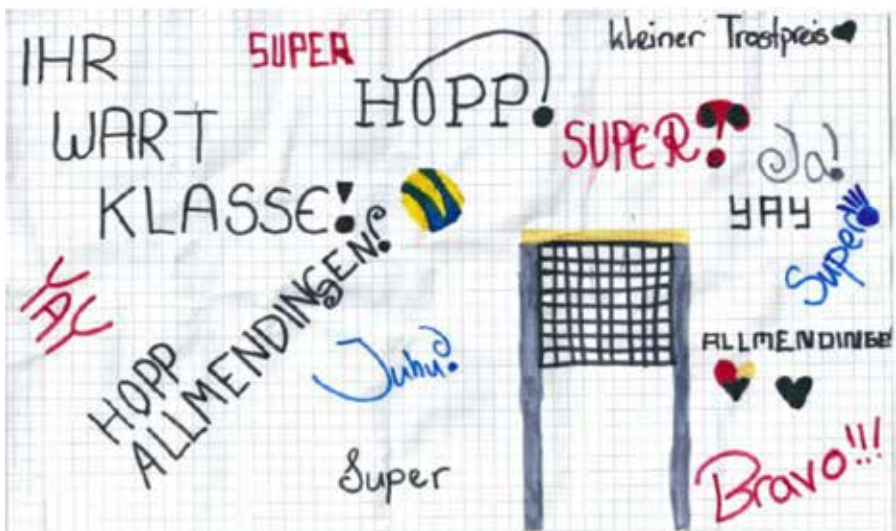 IHR
WART
KLASSE!
SUPER
HOPP!
kleiner Trostpreis
SUPER!
Ja!
YAY
Super!
YAY
HOPP
ALLMENDINGEN!
Juhu!
ALLMENDINGE
Super
Bravo!!!